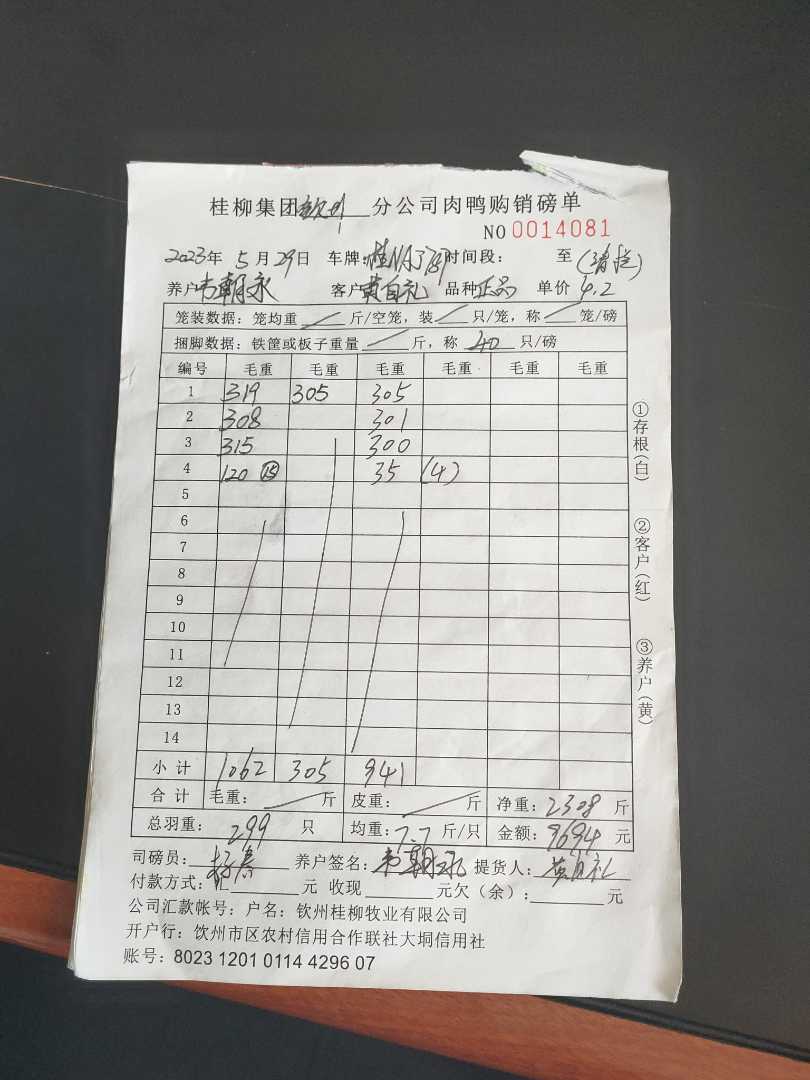 桂柳集团钦州分公司肉鸭购销磅单
NO 0014081
2023年 5月29日 车牌:桂NAJ787 时间段: 至 (清栏)
养户韦朝永 客户黄自礼 品种正品 单价 4.2
笼装数据：笼均重 斤/空笼，装 只/笼，称 笼/磅
捆脚数据：铁篚或板子重量 斤，称 40 只/磅
编号 毛重 毛重 毛重 毛重 毛重 毛重
1 319 305 305
2 308 301
3 315 300
4 120 ⑮ 35 (4)
5
6
7
8
9
10
11
12
13
14
小计 1062 305 941
合计 毛重： 斤 皮重： 斤 净重：2308 斤
总羽重：299 只 均重：7.7斤/只 金额：9694元
司磅员： 养户签名：韦朝永 提货人：黄自礼
付款方式：汇 元 收现 元欠（余）： 元
公司汇款帐号：户名：钦州桂柳牧业有限公司
开户行：饮州市区农村信用合作联社大垌信用社
账号：8023 1201 0114 4296 07
①存根(白)
②客户(红)
③养户(黄)